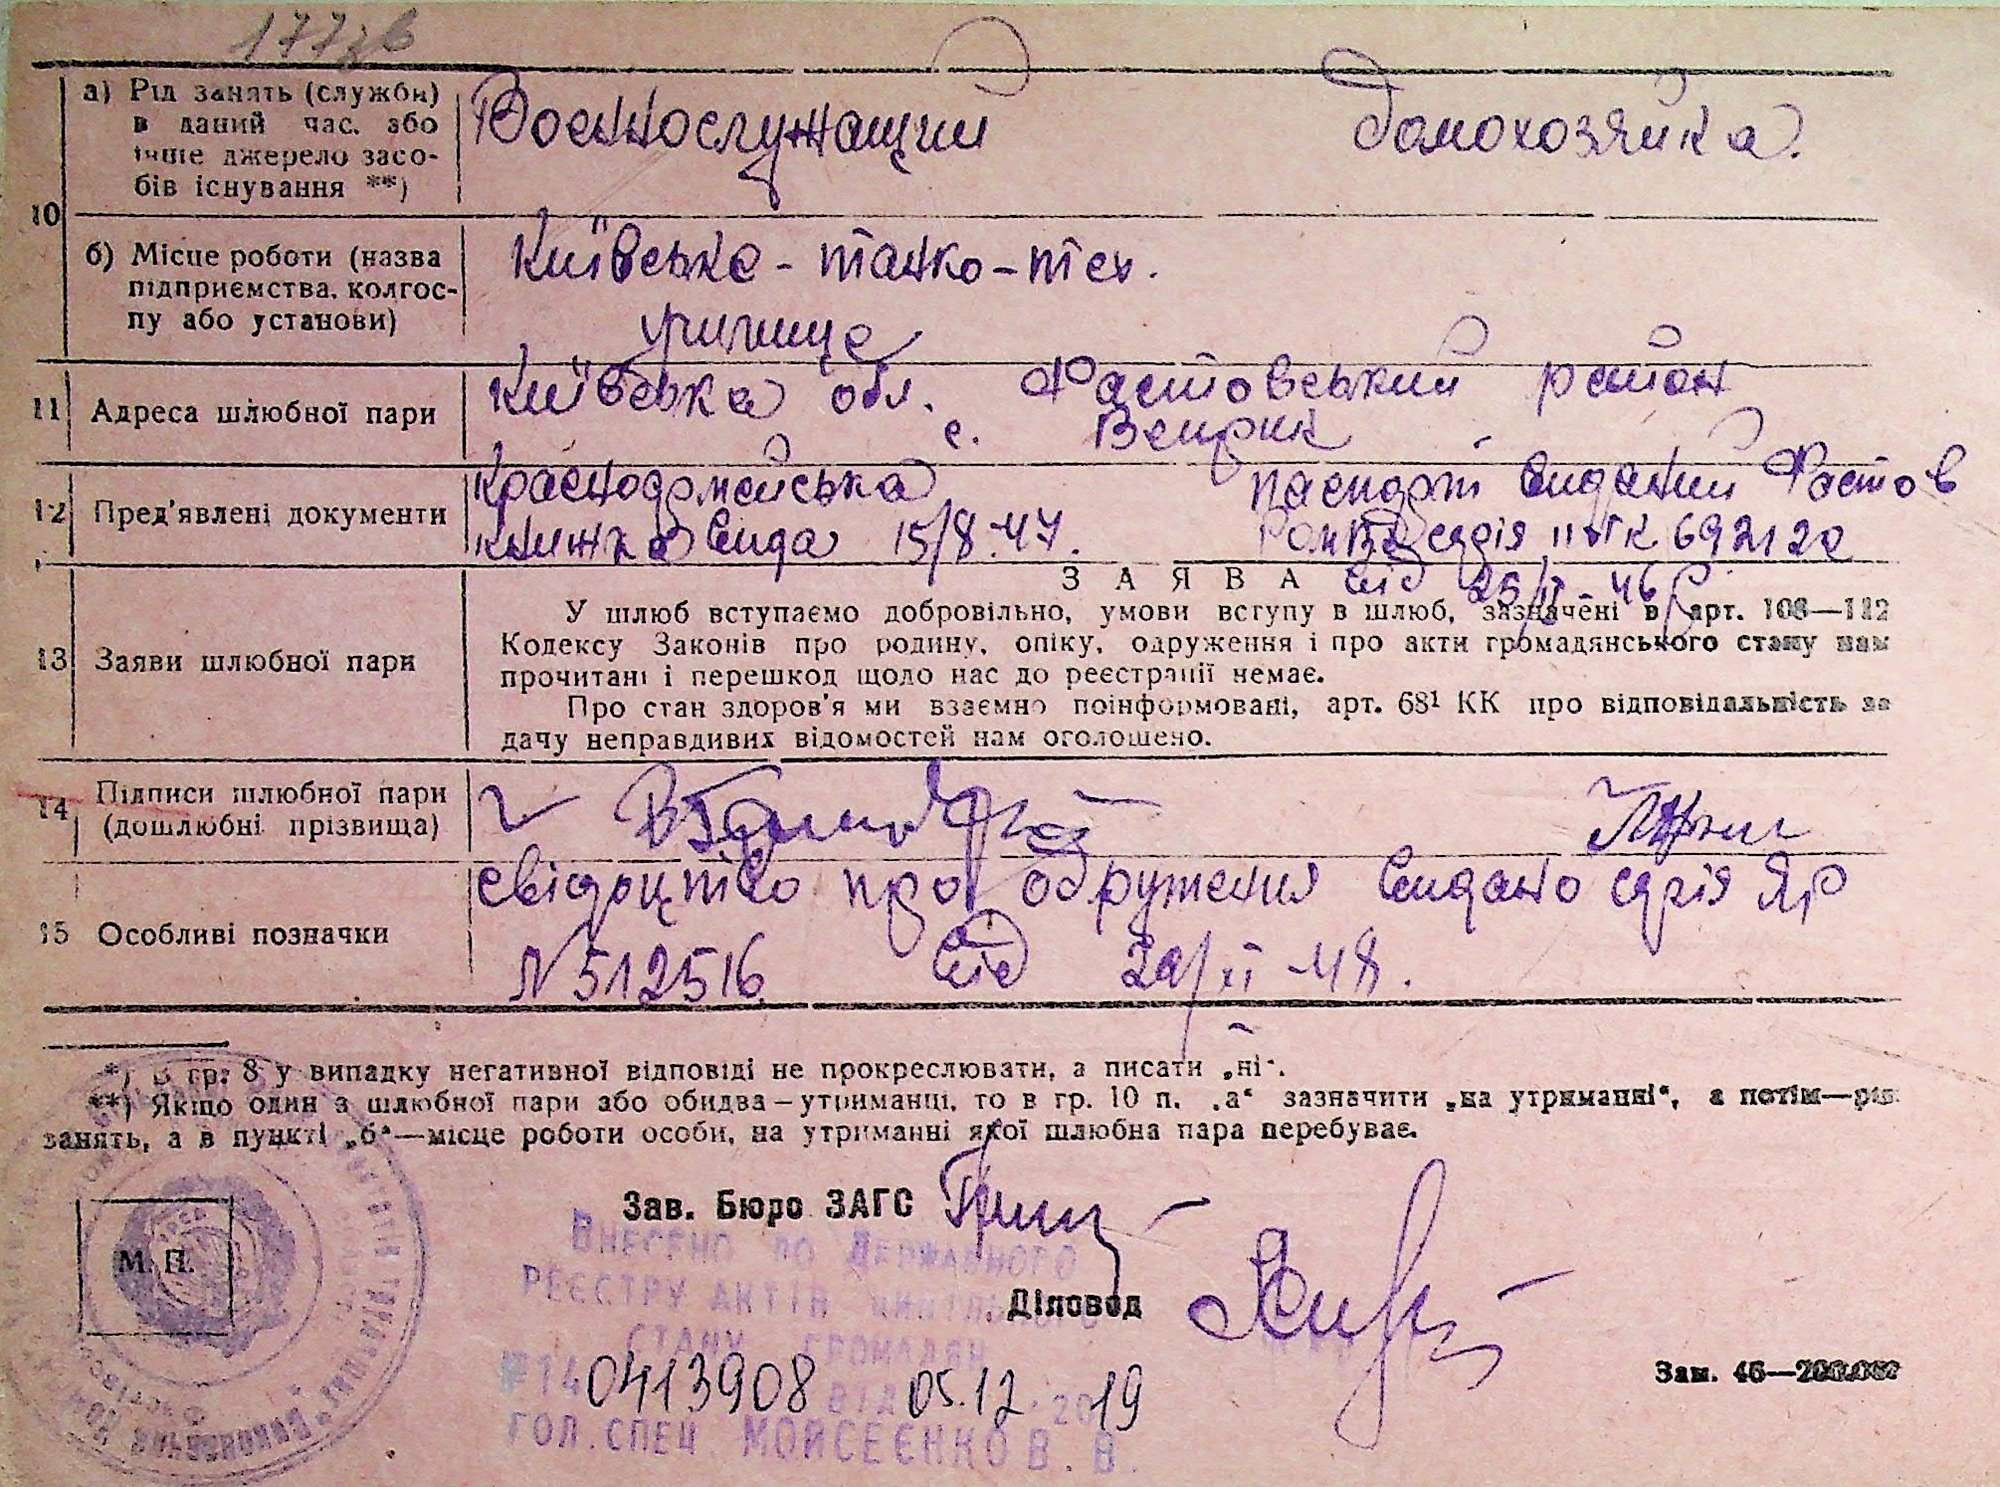 177зв
10
а) Рід занять (служби) в даний час, або інше джерело засобів існування **)
Военнослужащий
домохозяйка.
б) Місце роботи (назва підприємства, колгоспу або установи)
Київське-танко-тех.
училище
11 Адреса шлюбної пари
Київська обл. Фастовський район
с. Веприк
12 Пред'явлені документи
Красноармейська
книжка вида 15/8-47.
паспорт виданий Фастов
серія II ГК 692120
від 25/II-46 р.
13 Заяви шлюбної пари
ЗАЯВА
У шлюб вступаємо добровільно, умови вступу в шлюб, зазначені в арт. 108—112
Кодексу Законів про родину, опіку, одруження і про акти громадянського стану нам
прочитані і перешкод щодо нас до реєстрації немає.
Про стан здоров'я ми взаємно поінформовані, арт. 68¹ КК про відповідальність за
дачу неправдивих відомостей нам оголошено.
14 Підписи шлюбної пари (дошлюбні прізвища)
15 Особливі позначки
свідоцтво про одруження видано серія ЯР
N 512516 від 20/XI-48.
*) В гр. 8 у випадку негативної відповіді не прокреслювати, а писати „ні“.
**) Якщо один з шлюбної пари або обидва—утриманці, то в гр. 10 п. „а“ зазначити „на утриманні“, а потім—рід
занять, а в пункті „б“—місце роботи особи, на утриманні якої шлюбна пара перебуває.
М. П.
Зав. Бюро ЗАГС
Діловод
Внесено до Державного
реєстру актів цивільного
стану громадян
№14 0413908 від 05.12.2019
гол. спец. Мойсеєнко В. В.
Зам. 46—200.000